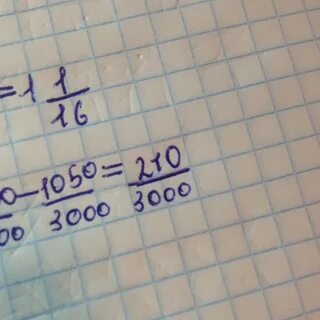 =1 1/16
0/00 - 1050/3000 = 210/3000